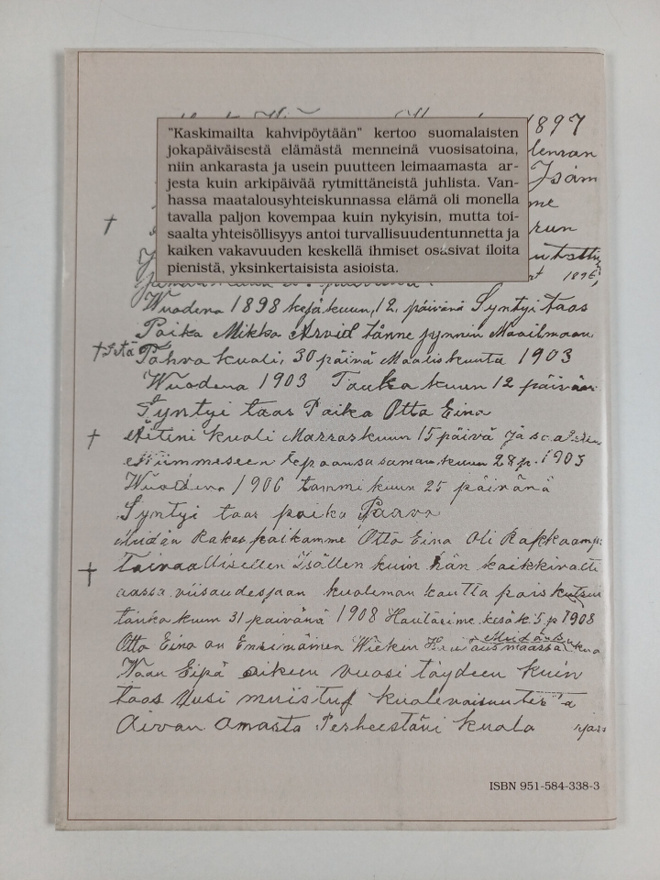 1897
"Kaskimailta kahvipöytään" kertoo suomalaisten
jokapäiväisestä elämästä menneinä vuosisatoina,
niin ankarasta ja usein puutteen leimaamasta ar-
jesta kuin arkipäivää rytmittäneistä juhlista. Van-
hassa maatalousyhteiskunnassa elämä oli monella
tavalla paljon kovempaa kuin nykyisin, mutta toi-
saalta yhteisöllisyys antoi turvallisuudentunnetta ja
kaiken vakavuuden keskellä ihmiset osasivat iloita
pienistä, yksinkertaisista asioista.
Isäm
me
run
1896,
Wuodena 1898 kesäkuun, 12, päivänä Syntyi taas
Poika Mikko Arvid tänne synnin Maailmaan
† Istä Tahvo kuoli, 30 päivä Maaliskuuta 1903
Wuodena 1903 Toukokuun 12 päivän
Syntyi taas Poika Otto Eino
† Äiteni kuoli Marraskuun 15 päivä ja
Wiimmeseen lepoonsa saman kuun 28 p. 1903
Wuodena 1906 tammikuun 25 päivänä
Syntyi taas poika Paavo
Meidän Rakas poikamme Otto Eino Oli Rakkaampi
† Taivaallisellen Isällen kuin hän kaikkivalti
aassa viisaudesjaan kuoleman kautta pois kutsui
toukokuun 31 päivänä 1908 Hautasime kesäk. 5 p 1908
Otto Eino on Ensimäinen Wieken
Waan Eipä oikeen vuosi täydeen kuin
taas Uusi muistuf kuolevaisuutes a
Aivan Omasta Perheestäni kuolo
ISBN 951-584-338-3